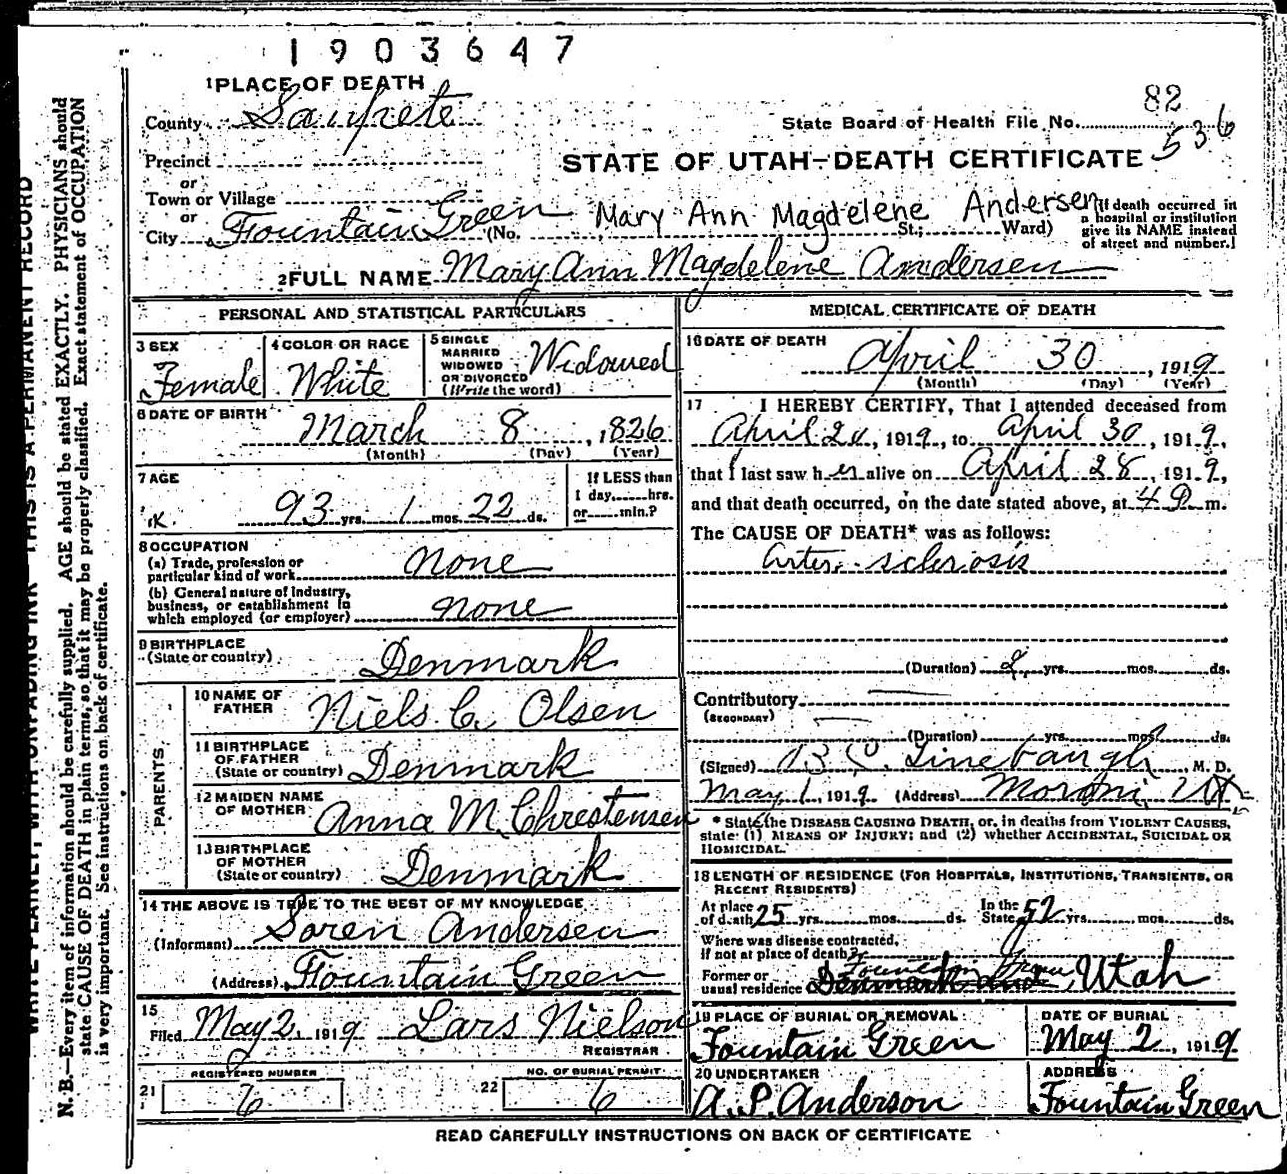 1903647
1 PLACE OF DEATH
County Sanpete
82
State Board of Health File No. 536
Precinct
STATE OF UTAH—DEATH CERTIFICATE
or
Town or Village
or
City Fountain Green (No. Mary Ann Magdelene Andersen St.; Ward)
[If death occurred in
a hospital or institution
give its NAME instead
of street and number.]
2 FULL NAME Mary Ann Magdelene Andersen
PERSONAL AND STATISTICAL PARTICULARS
3 SEX
Female
4 COLOR OR RACE
White
5 SINGLE
MARRIED
WIDOWED
OR DIVORCED
(Write the word)
Widowed
6 DATE OF BIRTH
March 8, 1826
(Month) (Day) (Year)
7 AGE
93 yrs. 1 mos. 22 ds.
If LESS than
1 day......hrs.
or......min.?
8 OCCUPATION
(a) Trade, profession or
particular kind of work None
(b) General nature of industry,
business, or establishment in
which employed (or employer) None
9 BIRTHPLACE
(State or country) Denmark
PARENTS
10 NAME OF
FATHER Niels C. Olsen
11 BIRTHPLACE
OF FATHER
(State or country) Denmark
12 MAIDEN NAME
OF MOTHER Anna M. Christensen
13 BIRTHPLACE
OF MOTHER
(State or country) Denmark
14 THE ABOVE IS TRUE TO THE BEST OF MY KNOWLEDGE
(Informant) Soren Andersen
(Address) Fountain Green
15
Filed May 2, 1919 Lars Nielson
REGISTRAR
21 REGISTERED NUMBER
6
22 NO. OF BURIAL PERMIT
6
MEDICAL CERTIFICATE OF DEATH
16 DATE OF DEATH
April 30, 1919
(Month) (Day) (Year)
17 I HEREBY CERTIFY, That I attended deceased from
April 20, 1919, to April 30, 1919,
that I last saw her alive on April 28, 1919,
and that death occurred, on the date stated above, at 4 P. m.
The CAUSE OF DEATH* was as follows:
Arter. sclerosis
(Duration) 2 yrs. mos. ds.
Contributory
(SECONDARY)
(Duration) yrs. mos. ds.
(Signed) B C. Linebaugh, M. D.
May 1, 1919 (Address) Moroni, Ut
* State the DISEASE CAUSING DEATH, or, in deaths from VIOLENT CAUSES,
state (1) MEANS OF INJURY; and (2) whether ACCIDENTAL, SUICIDAL OR
HOMICIDAL.
18 LENGTH OF RESIDENCE (FOR HOSPITALS, INSTITUTIONS, TRANSIENTS, OR
RECENT RESIDENTS)
At place
of death 25 yrs. mos. ds.
In the
State 52 yrs. mos. ds.
Where was disease contracted,
if not at place of death?
Former or
usual residence Fountain Green, Utah
19 PLACE OF BURIAL OR REMOVAL
Fountain Green
DATE OF BURIAL
May 2, 1919
20 UNDERTAKER
A. P. Anderson
ADDRESS
Fountain Green
READ CAREFULLY INSTRUCTIONS ON BACK OF CERTIFICATE
WRITE PLAINLY, WITH UNFADING INK—THIS IS A PERMANENT RECORD
N. B.—Every item of information should be carefully supplied. AGE should be stated EXACTLY. PHYSICIANS should
state CAUSE OF DEATH in plain terms, so that it may be properly classified. Exact statement of OCCUPATION
is very important. See instructions on back of certificate.